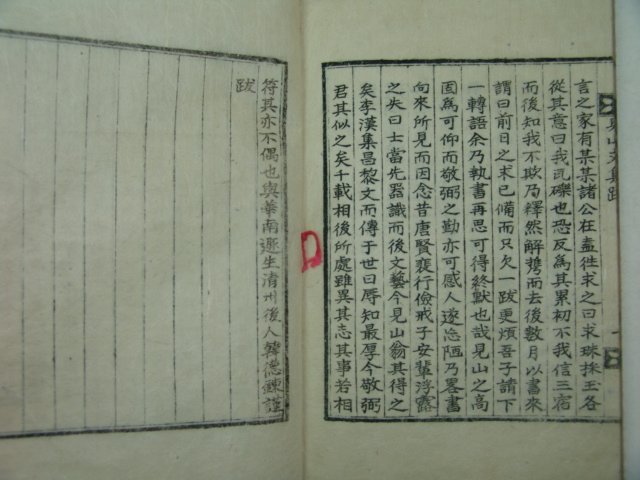 言之家有某某諸公在盍徃求之曰求珠採玉各
從其意曰我瓦礫也恐反爲其累初不我信三宿
而後知我不欺乃釋然解携而去後數月以書來
謂曰前日之求已備而只欠一跋更煩吾子請下
一轉語余乃執書再思可得終默也哉見山之高
固爲可仰而敬弼之勤亦可感人遂忘陋乃畧書
向來所見而因念昔唐賢裵行儉戒子安輩浮露
之失曰士當先器識而後文藝今見山翁其得之
矣李漢集昌黎文而傳于世曰辱知最厚今敬弼
君其似之矣千載相後所處雖異其志其事若相
符其亦不偶也與華南遯生淸州後人韓德鍊謹
跋
見山文集跋